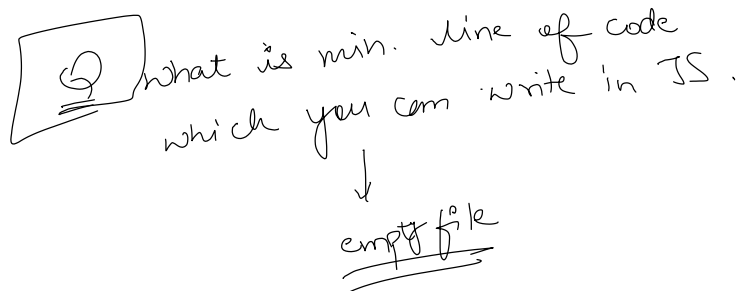 Q what is min. line of code
which you can write in JS.
empty file